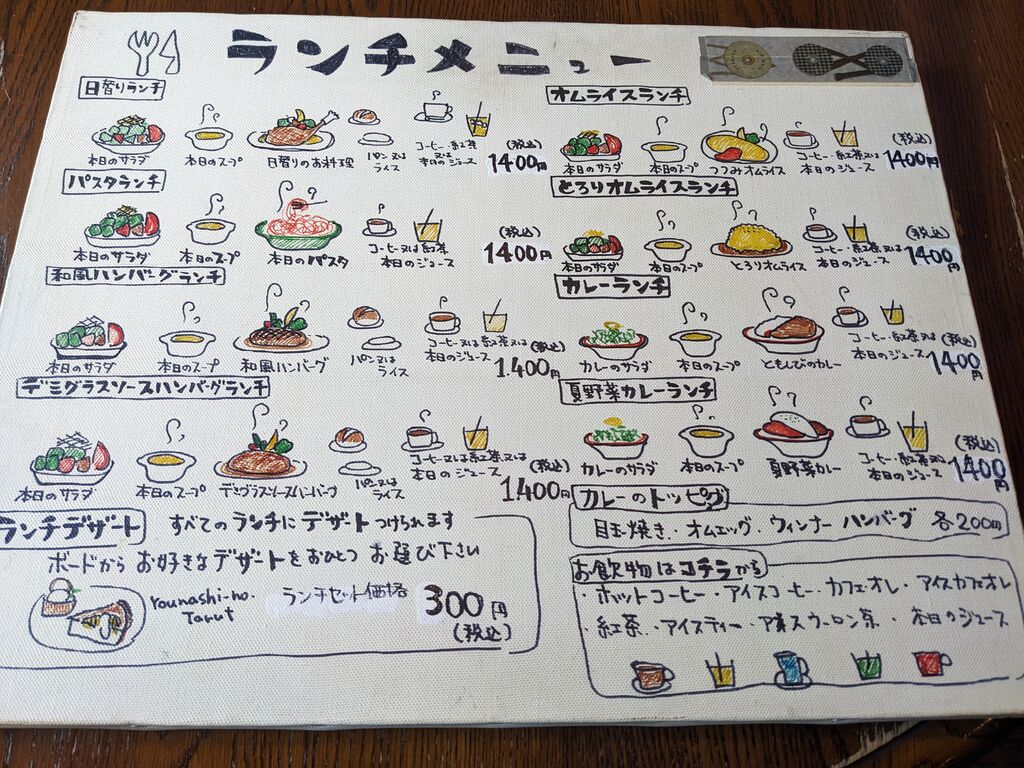 ランチメニュー
日替りランチ
本日のサラダ
本日のスープ
日替りのお料理
パン又は
ライス
コーヒー・紅茶
又は
本日のジュース
(税込)
1400円
パスタランチ
本日のサラダ
本日のスープ
本日のパスタ
コーヒー又は紅茶
本日のジュース
(税込)
1400円
和風ハンバーグランチ
本日のサラダ
本日のスープ
和風ハンバーグ
パン又は
ライス
コーヒー又は紅茶又は
本日のジュース
(税込)
1.400円
デミグラスソースハンバーグランチ
本日のサラダ
本日のスープ
デミグラスソースハンバーグ
パン又は
ライス
コーヒー又は紅茶又は
本日のジュース
(税込)
1400円
ランチデザート すべてのランチにデザートつけられます
ボードから お好きなデザートをおひとつ お選び下さい
younashi-no.
Tarut
ランチセット価格 300円
(税込)
オムライスランチ
本日のサラダ
本日のスープ
つつみオムライス
コーヒー・紅茶又は
本日のジュース
(税込)
1400円
とろりオムライスランチ
本日のサラダ
本日のスープ
とろりオムライス
コーヒー・紅茶又は
本日のジュース
(税込)
1400円
カレーランチ
カレーのサラダ
本日のスープ
ともんびのカレー
コーヒー・紅茶又は
本日のジュース
(税込)
1400円
夏野菜カレーランチ
カレーのサラダ
本日のスープ
夏野菜カレー
コーヒー・紅茶又は
本日のジュース
(税込)
1400円
カレーのトッピング
目玉焼き・オムエッグ・ウィンナー ハンバーグ 各200円
お飲物はコチラから
・ホットコーヒー・アイスコーヒー・カフェオレ・アイスカフェオレ
・紅茶・アイスティー・アイスウーロン茶・本日のジュース